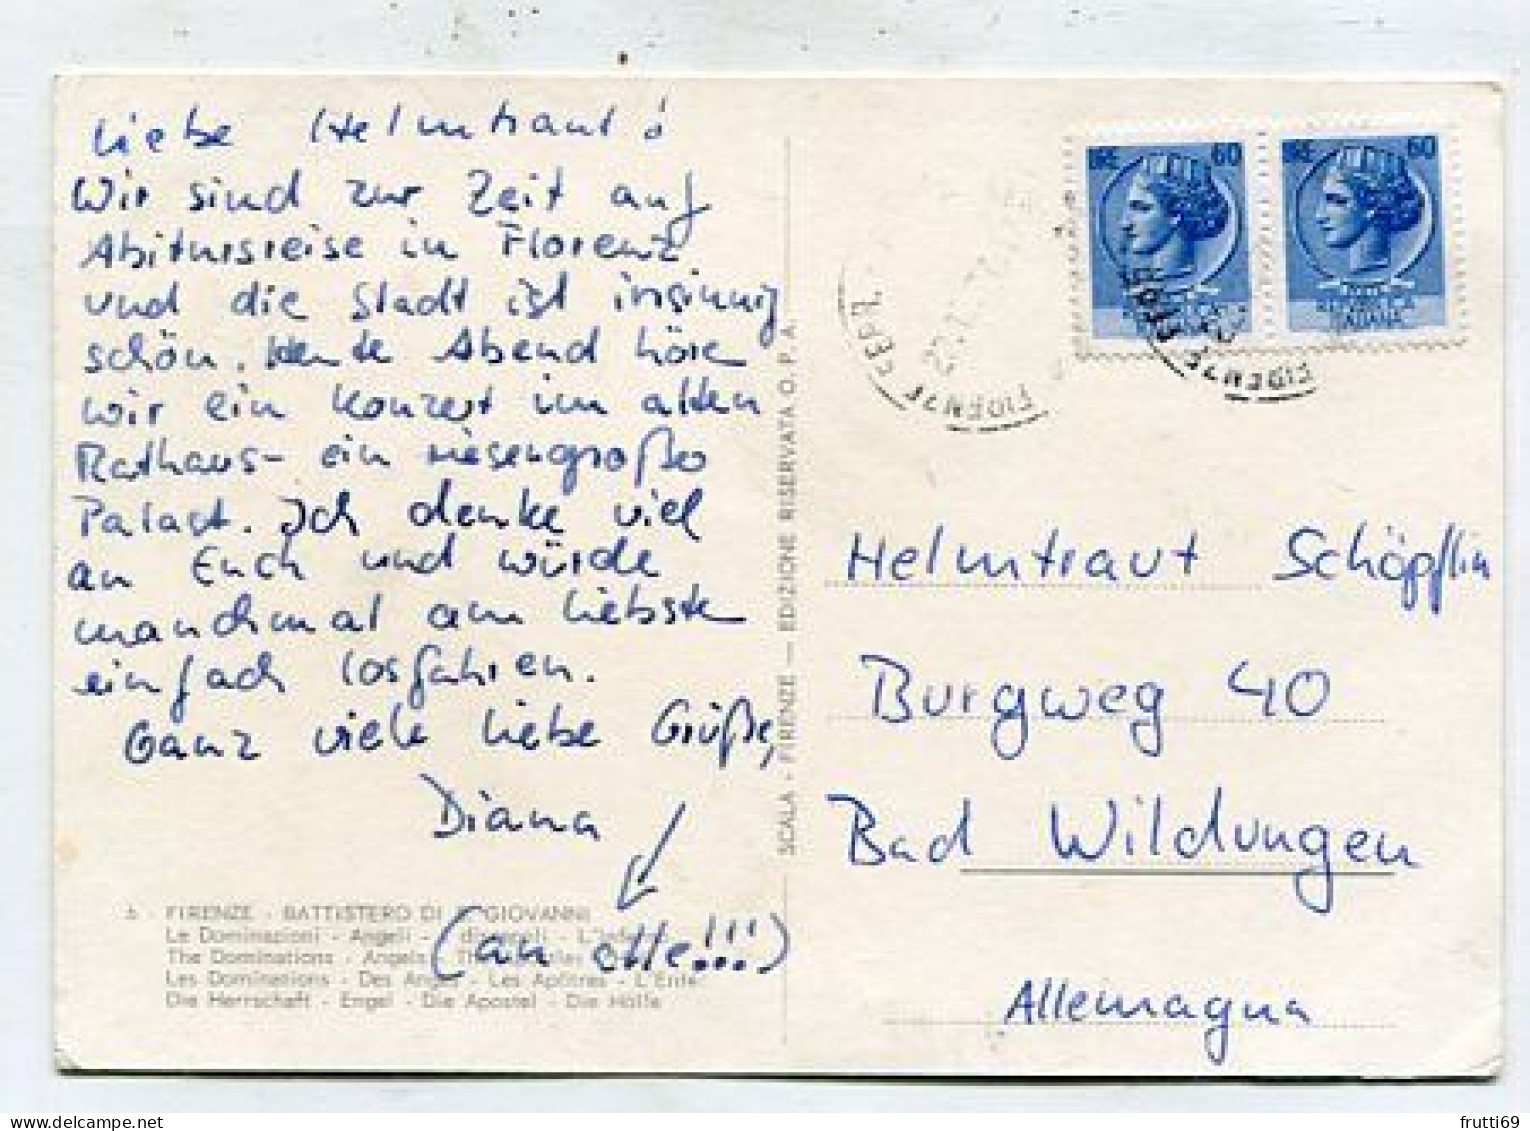 Liebe Helmtraut!
Wir sind zur Zeit auf
Abitursreise in Florenz
und die Stadt ist irrsinnig
schön. Heute Abend höre
wir ein Konzert im alten
Rathaus - ein riesengroßer
Palast. Ich denke viel
an Euch und würde
manchmal am liebsten
einfach losfahren.
Ganz viele liebe Grüße,
Diana
(an alle!!!)
6 - FIRENZE - BATTISTERO DI S. GIOVANNI
Le Dominazioni - Angeli -
The Dominations - Angels
Les Dominations - Des Anges - Les Apôtres - L'Enfer
Die Herrschaft - Engel - Die Apostel - Die Hölle
SCALA - FIRENZE — EDIZIONE RISERVATA O. P. A.
LIRE 60
LIRE 60
REPUBBLICA
ITALIANA
FIRENZE FERR
FIRENZE FERR
Helmtraut Schöpflin
Burgweg 40
Bad Wildungen
Allemagna
frutti69